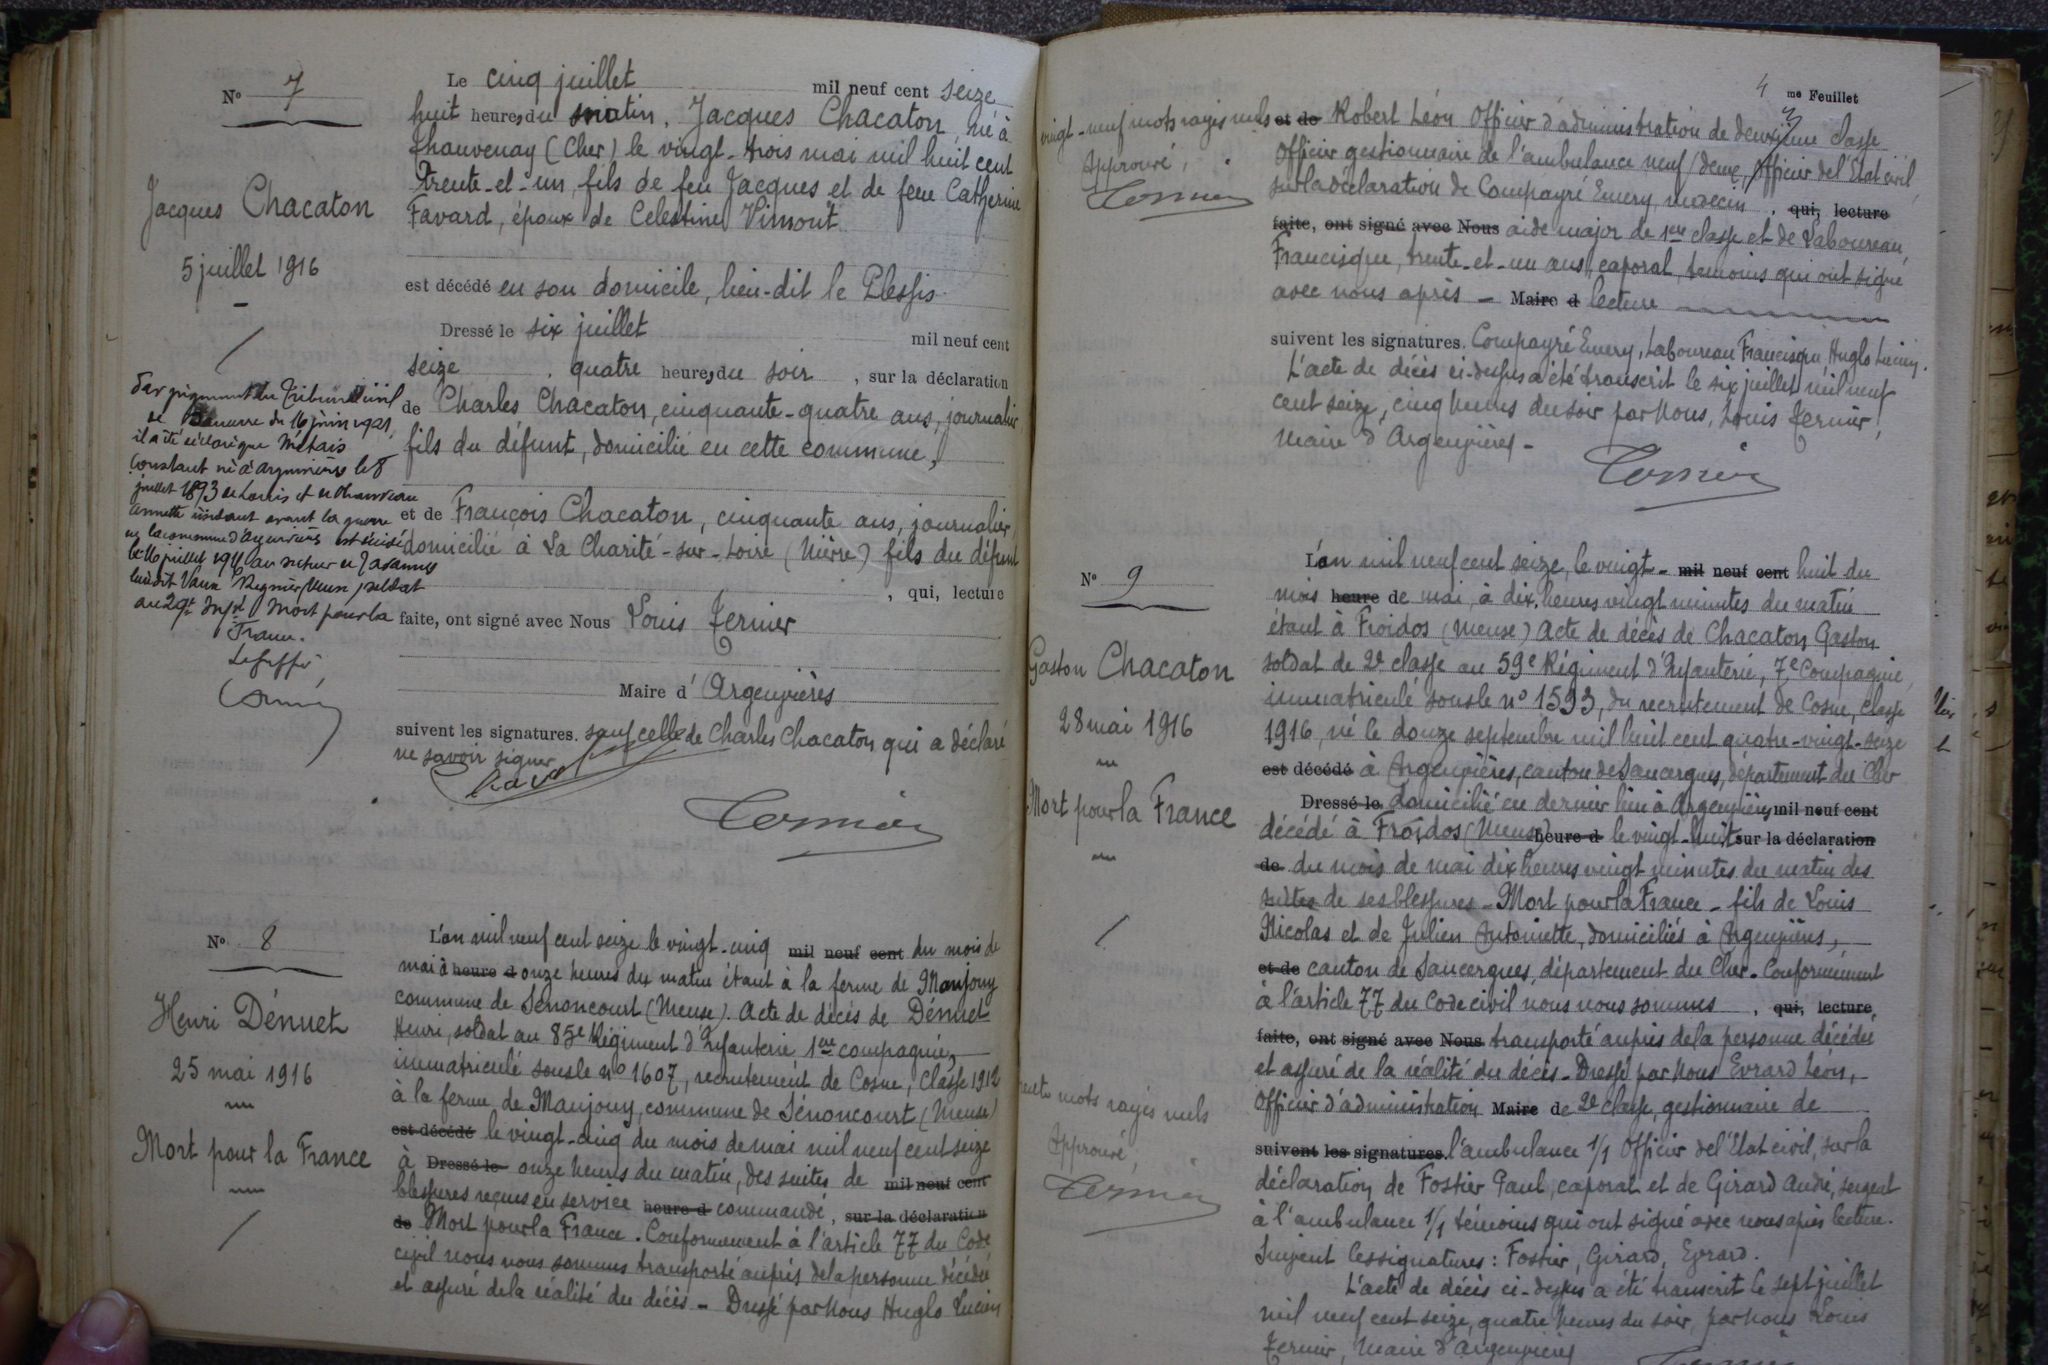 N° 7
Jacques Chacaton
5 juillet 1916
Le cinq juillet mil neuf cent seize
huit heures du matin, Jacques Chacaton, né à
Thauvenay (Cher) le vingt-trois mai mil huit cent
trente-et-un, fils de feu Jacques et de feue Catherine
Favard, époux de Celestine Vimont.
est décédé en son domicile, lieu-dit le Plessis
Dressé le six juillet mil neuf cent
seize, quatre heures du soir, sur la déclaration
de Charles Chacaton, cinquante-quatre ans, journalier
fils du défunt, domicilié en cette commune,
et de François Chacaton, cinquante ans, journalier,
domicilié à La Charité-sur-Loire (Nièvre) fils du défunt
, qui, lecture
faite, ont signé avec Nous Louis Ternier
Maire d'Argenvières
suivent les signatures. sauf celle de Charles Chacaton qui a déclaré
ne savoir signer
Par jugement du Tribunal civil
de Sancerre du 16 juin 1921,
il a été déclaré que Métais
Constant né à Argenvières le 8
juillet 1893 de Louis et de
avant la guerre
en la commune d'Argenvières est décédé
le 16 juillet au secteur de
lieudit soldat
au 29e Infie Mort pour la
France.
Le Greffier
N° 8
Henri Dénuet
25 mai 1916
Mort pour la France
L'an mil neuf cent seize le vingt-cinq mil neuf cent du mois de
mai à heure d onze heures du matin étant à la ferme de Maujouy
commune de Sénoncourt (Meuse). Acte de décès de Dénuet
Henri, soldat au 85e Régiment d'Infanterie 1ère compagnie,
immatriculé sous le n° 1607, recrutement de Cosne, Classe 1912
à la ferme de Maujouy, commune de Sénoncourt (Meuse)
est décédé le vingt-cinq du mois de mai mil neuf cent seize
à Dressé le onze heures du matin, des suites de mil neuf cent
blessures reçues en service heure d commandé, sur la déclaration
de Mort pour la France. Conformément à l'article 77 du Code
civil nous nous sommes transporté auprès de la personne décédée
et assuré de la réalité du décès - Dressé par Nous Huglo Lucien
4 me Feuillet
3
vingt-neuf mots rayés nuls
Approuvé,
Ternier
et de Robert Léon Officier d'administration de deuxième classe
Officier gestionnaire de l'ambulance neuf/deux, Officier de l'Etat civil,
sur la déclaration de Compayré Emery, médecin, qui, lecture
faite, ont signé avec Nous aide major de 1ère classe et de Laboureau,
Francisque, trente-et-un ans, caporal, témoins qui ont signé
avec nous après - Maire d lecture
suivent les signatures. Compayré Emery, Laboureau Francisque Huglo Lucien.
L'acte de décès ci-dessus a été transcrit le six juillet mil neuf
cent seize, cinq heures du soir par Nous, Louis Ternier,
Maire d'Argenvières -
Ternier
N° 9
Gaston Chacaton
28 mai 1916
Mort pour la France
L'an mil neuf cent seize, le vingt- mil neuf cent huit du
mois heure de mai, à dix heures vingt minutes du matin
étant à Froidos (Meuse) Acte de décès de Chacaton Gaston
soldat de 2e classe au 59e Régiment d'Infanterie, 7e Compagnie,
immatriculé sous le n° 1593, du recrutement de Cosne, classe
1916, né le douze septembre mil huit cent quatre-vingt-seize
est décédé à Argenvières, canton de Sancergues, département du Cher
Dressé le domicilié en dernier lieu à Argenvières, mil neuf cent
décédé à Froidos (Meuse) heure d le vingt-huit sur la déclaration
de du mois de mai dix heures vingt minutes du matin des
suites de ses blessures - Mort pour la France - fils de Louis
Nicolas et de Julien Antoinette, domiciliés à Argenvières,
et de canton de Sancergues, département du Cher. Conformément
à l'article 77 du Code civil nous nous sommes, qui, lecture,
faite, ont signé avec Nous transporté auprès de la personne décédée
et assuré de la réalité du décès - Dressé par Nous Evrard Léon,
Officier d'administration Maire de 2e classe, gestionnaire de
suivent les signatures. l'ambulance 1/1 Officier de l'Etat civil, sur la
déclaration de Fostier Paul, caporal et de Girard André, sergent
à l'ambulance 1/1 témoins qui ont signé avec nous après lecture.
Suivent les signatures : Fostier, Girard, Evrard.
L'acte de décès ci-dessus a été transcrit le sept juillet
mil neuf cent seize, quatre heures du soir, par Nous Louis
Ternier, Maire d'Argenvières
mots rayés nuls
Approuvé,
Ternier